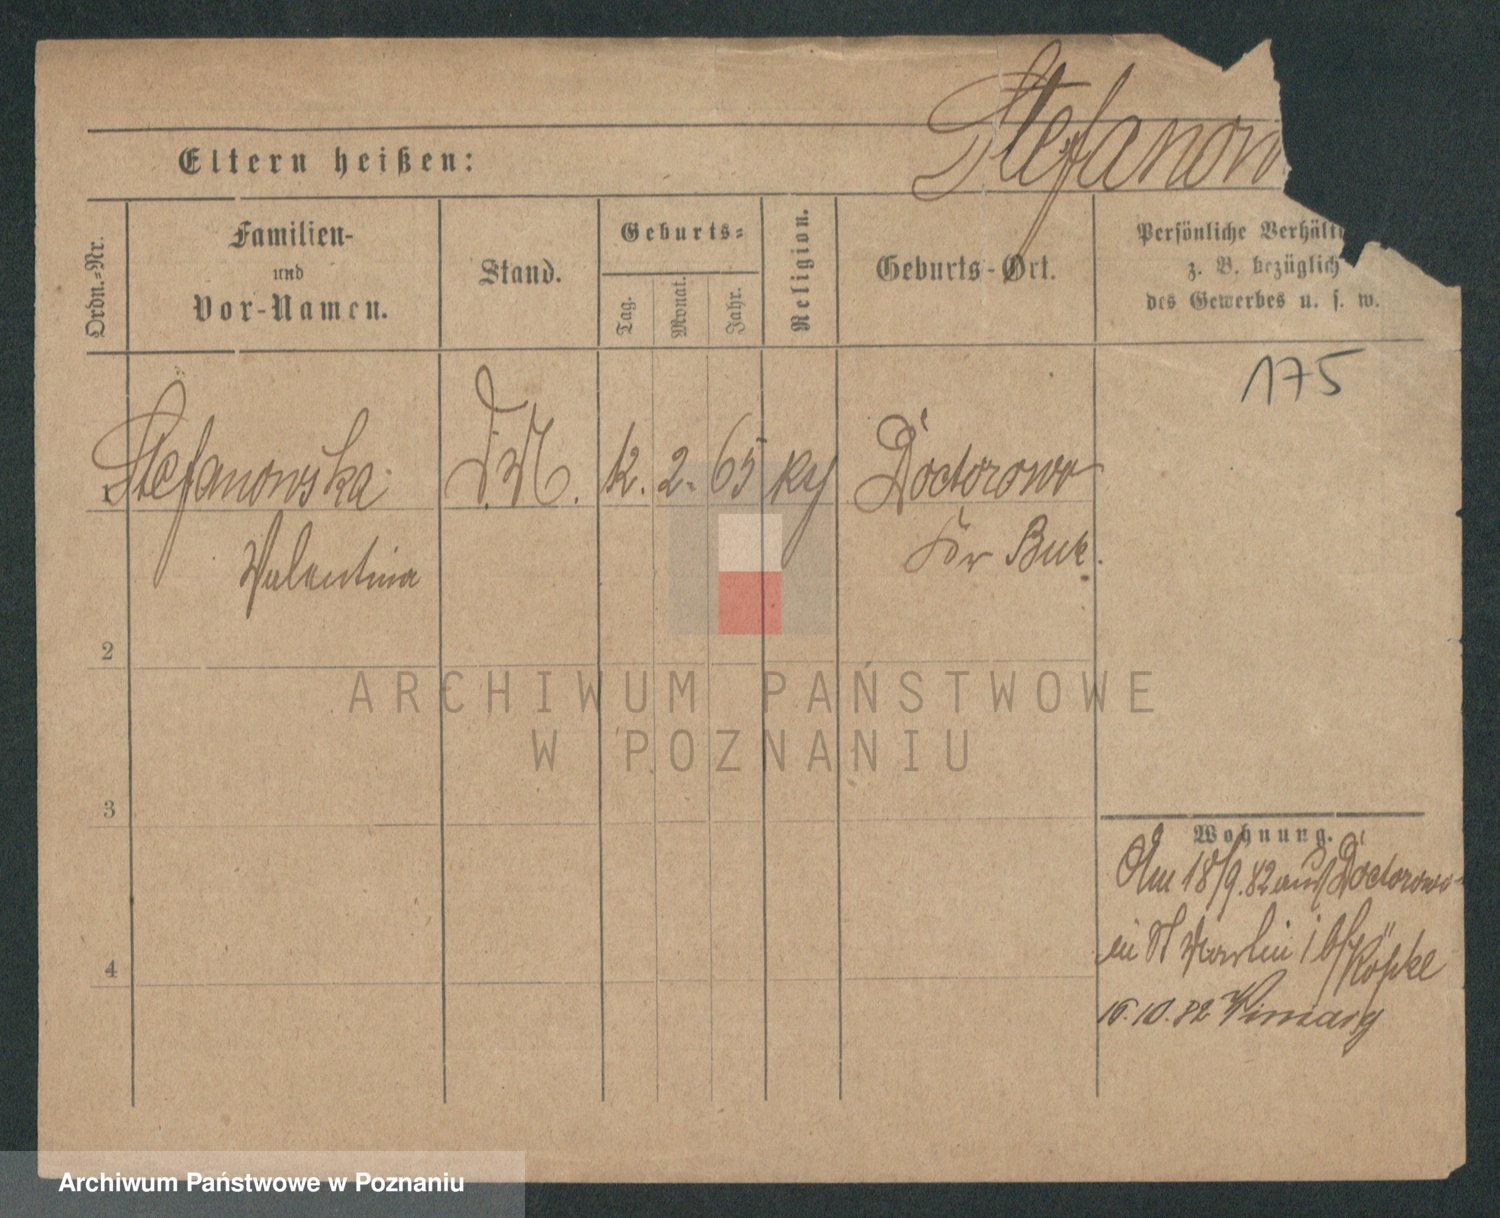 Stefanow
Eltern heißen:
Ordn.-Nr.
Familien-
und
Vor-Namen.
Stand.
Geburts-
Tag.
Monat.
Jahr.
Religion.
Geburts-Ort.
Persönliche Verhält
z. B. bezüglich
des Gewerbes u. s. w.
175
1 Stefanowska D.M. 12. 2. 65 Doctorowo
Valentina Kr Buk.
2
3
4
Wohnung.
Am 18/9.82 aus Doctorowo
St Martin b/
10.82
ARCHIWUM PAŃSTWOWE
W POZNANIU
Archiwum Państwowe w Poznaniu